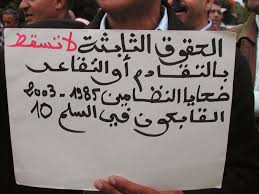 الحقوق الثابثة لا تسقط
بالتقادم أو التقاعد
ضحايا النظامين 1985-2003
القابعون في السلم 10